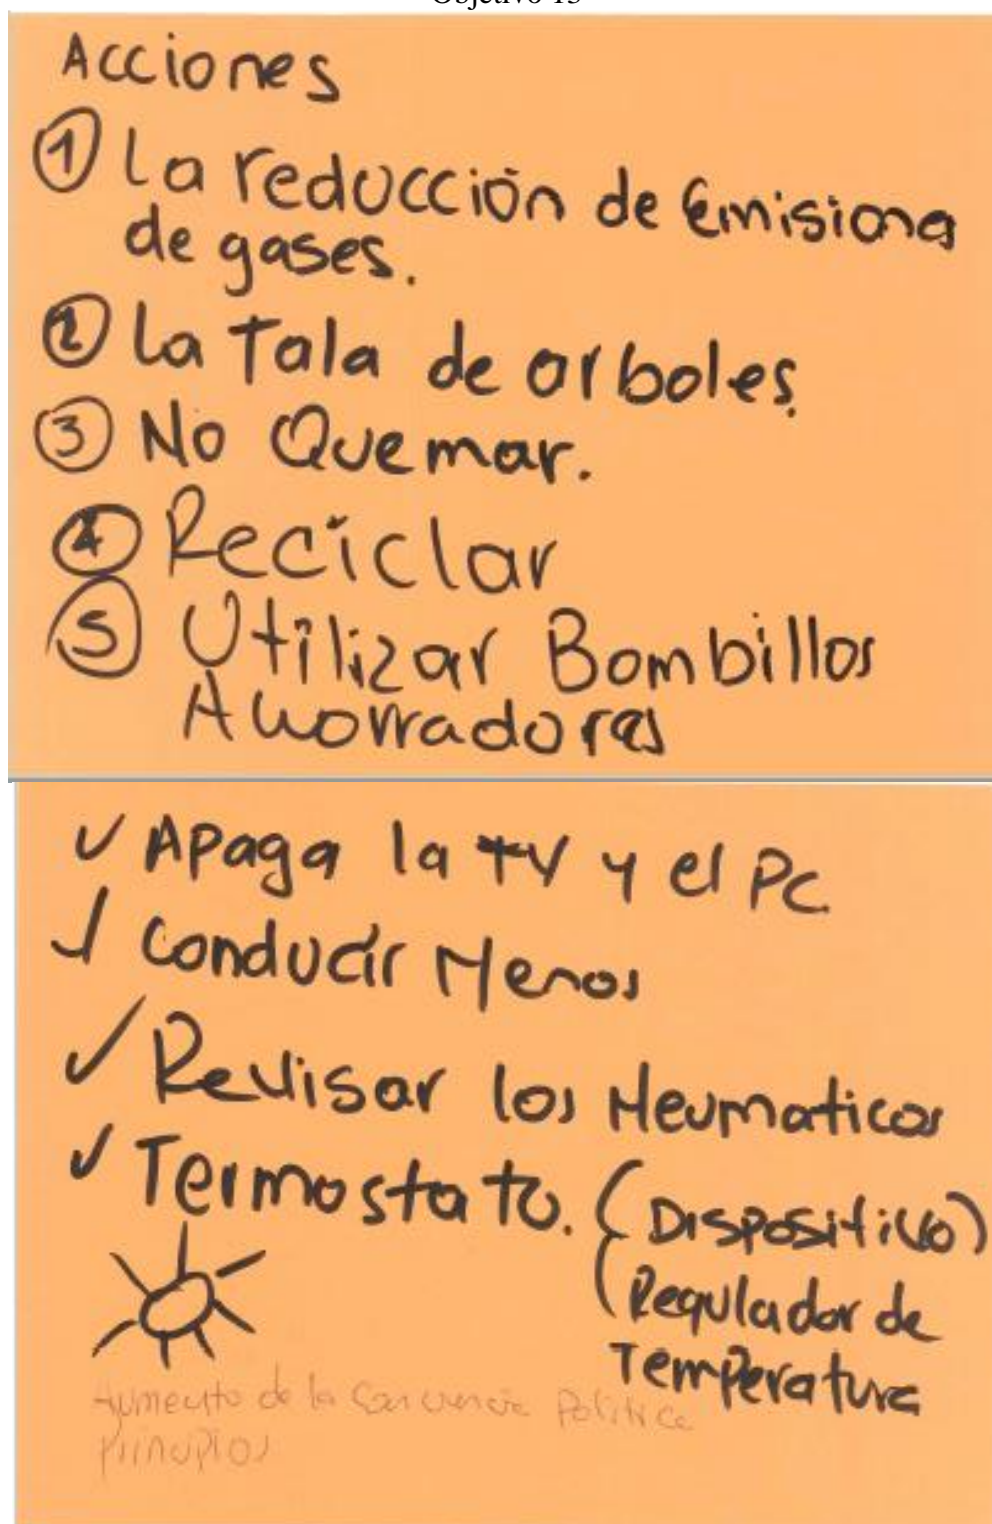 Objetivo 13
Acciones
① La reducción de Emisiona
de gases.
② La Tala de arboles.
③ No Quemar.
④ Reciclar
⑤ Utilizar Bombillos
Ahorradores
✓ Apaga la TV y el PC.
✓ Conducir Menos
✓ Revisar los Neumaticos
✓ Termostato. (Dispositivo)
(Regulador de
Temperatura
Aumento de la Conciencia Politica
Principios